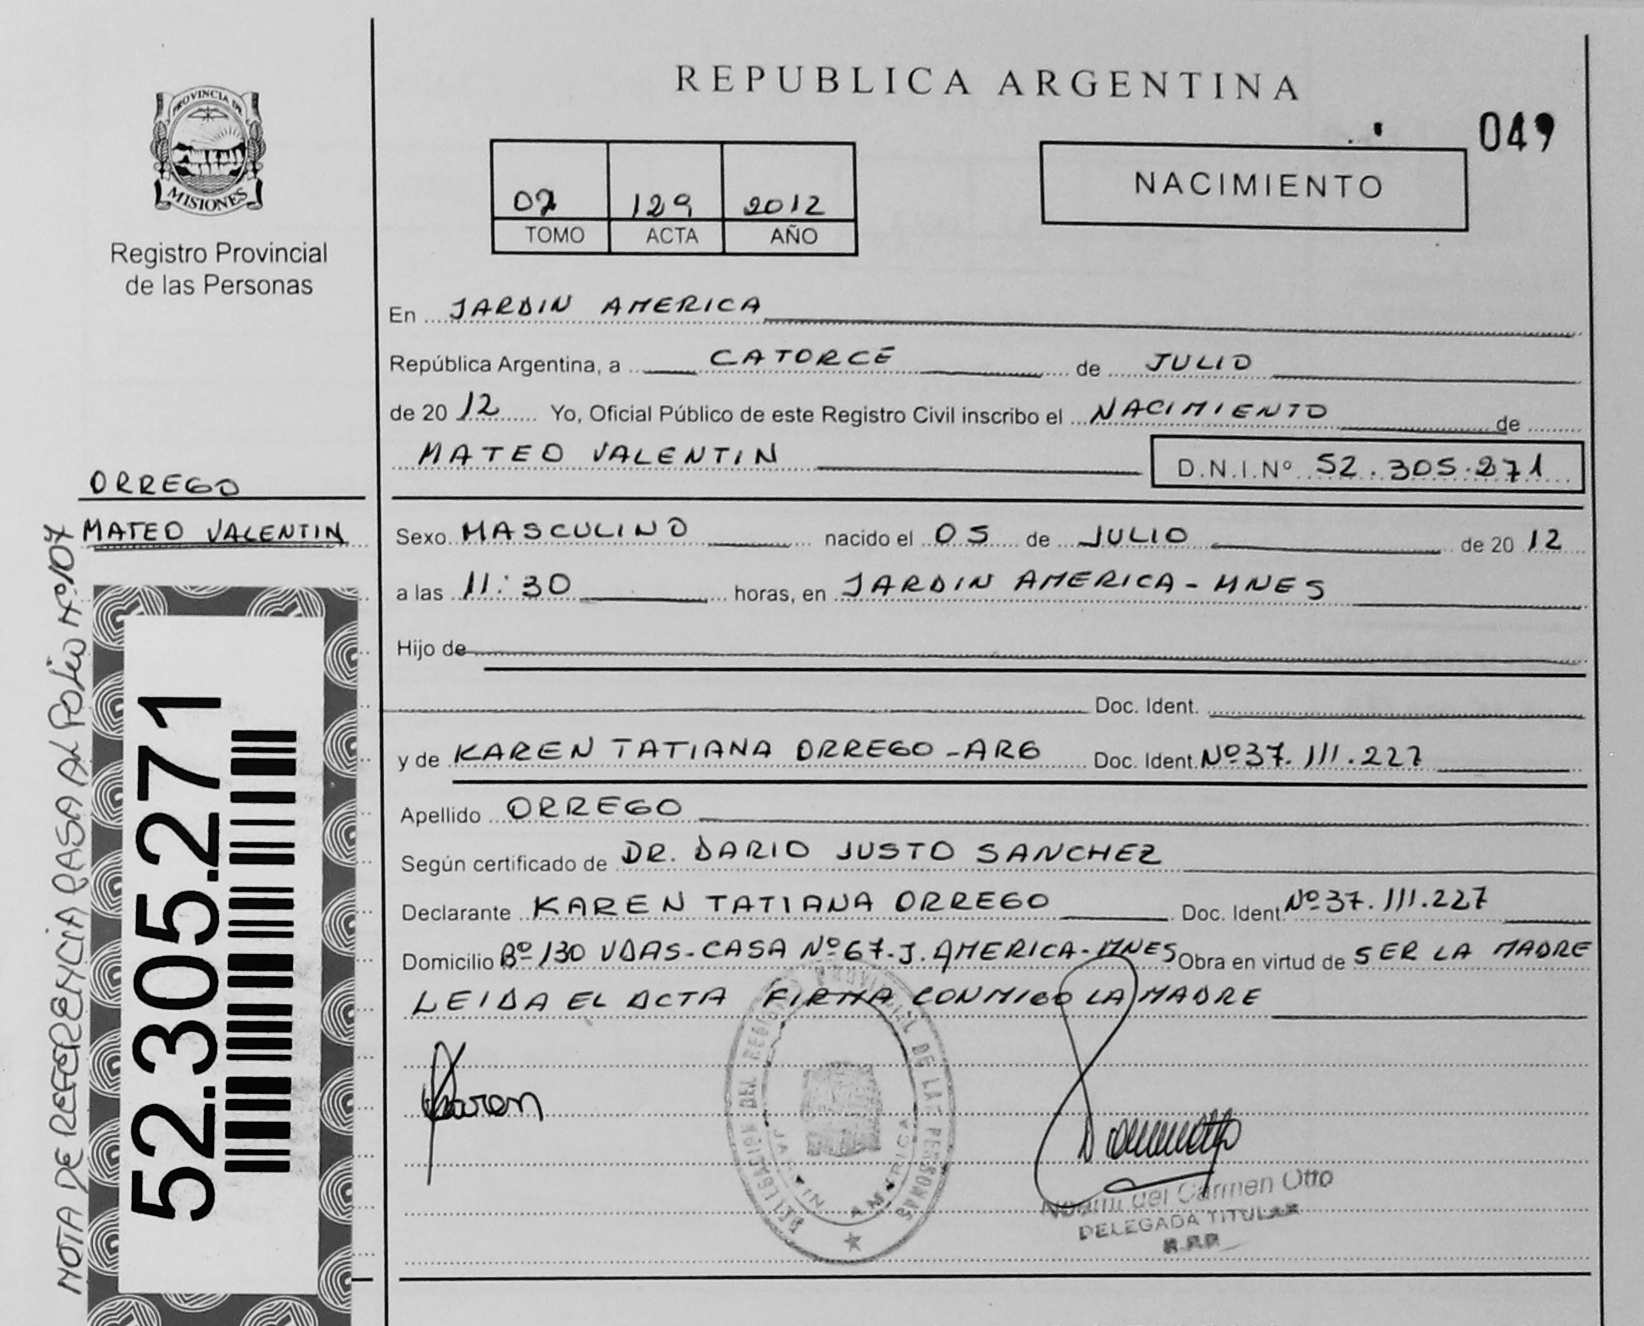 REPUBLICA ARGENTINA
049
PROVINCIA DE
MISIONES
Registro Provincial
de las Personas
07 129 2012
TOMO ACTA AÑO
NACIMIENTO
En JARDIN AMERICA
República Argentina, a CATORCE de JULIO
de 20 12 Yo, Oficial Público de este Registro Civil inscribo el NACIMIENTO de
MATEO VALENTIN D.N.I.Nº 52.305.271
ORREGO
MATEO VALENTIN
Sexo MASCULINO nacido el 05 de JULIO de 20 12
a las 11:30 horas, en JARDIN AMERICA - MNES
Hijo de
Doc. Ident.
y de KAREN TATIANA ORREGO - ARG Doc. Ident. Nº 37.111.227
Apellido ORREGO
Según certificado de DR. DARIO JUSTO SANCHEZ
Declarante KAREN TATIANA ORREGO Doc. Ident Nº 37.111.227
Domicilio Bº 130 VDAS - CASA Nº 67 - J. AMERICA - MNES Obra en virtud de SER LA MADRE
LEIDA EL ACTA FIRMA CONMIGO LA MADRE
Karen
DELEGACION DEL REGISTRO PROVINCIAL DE LAS PERSONAS
JARDIN AMERICA
del Carmen Otto
DELEGADA TITULAR
R.P.P.
52.305.271
NOTA DE REFERENCIA PASA AL FOLIO Nº 107